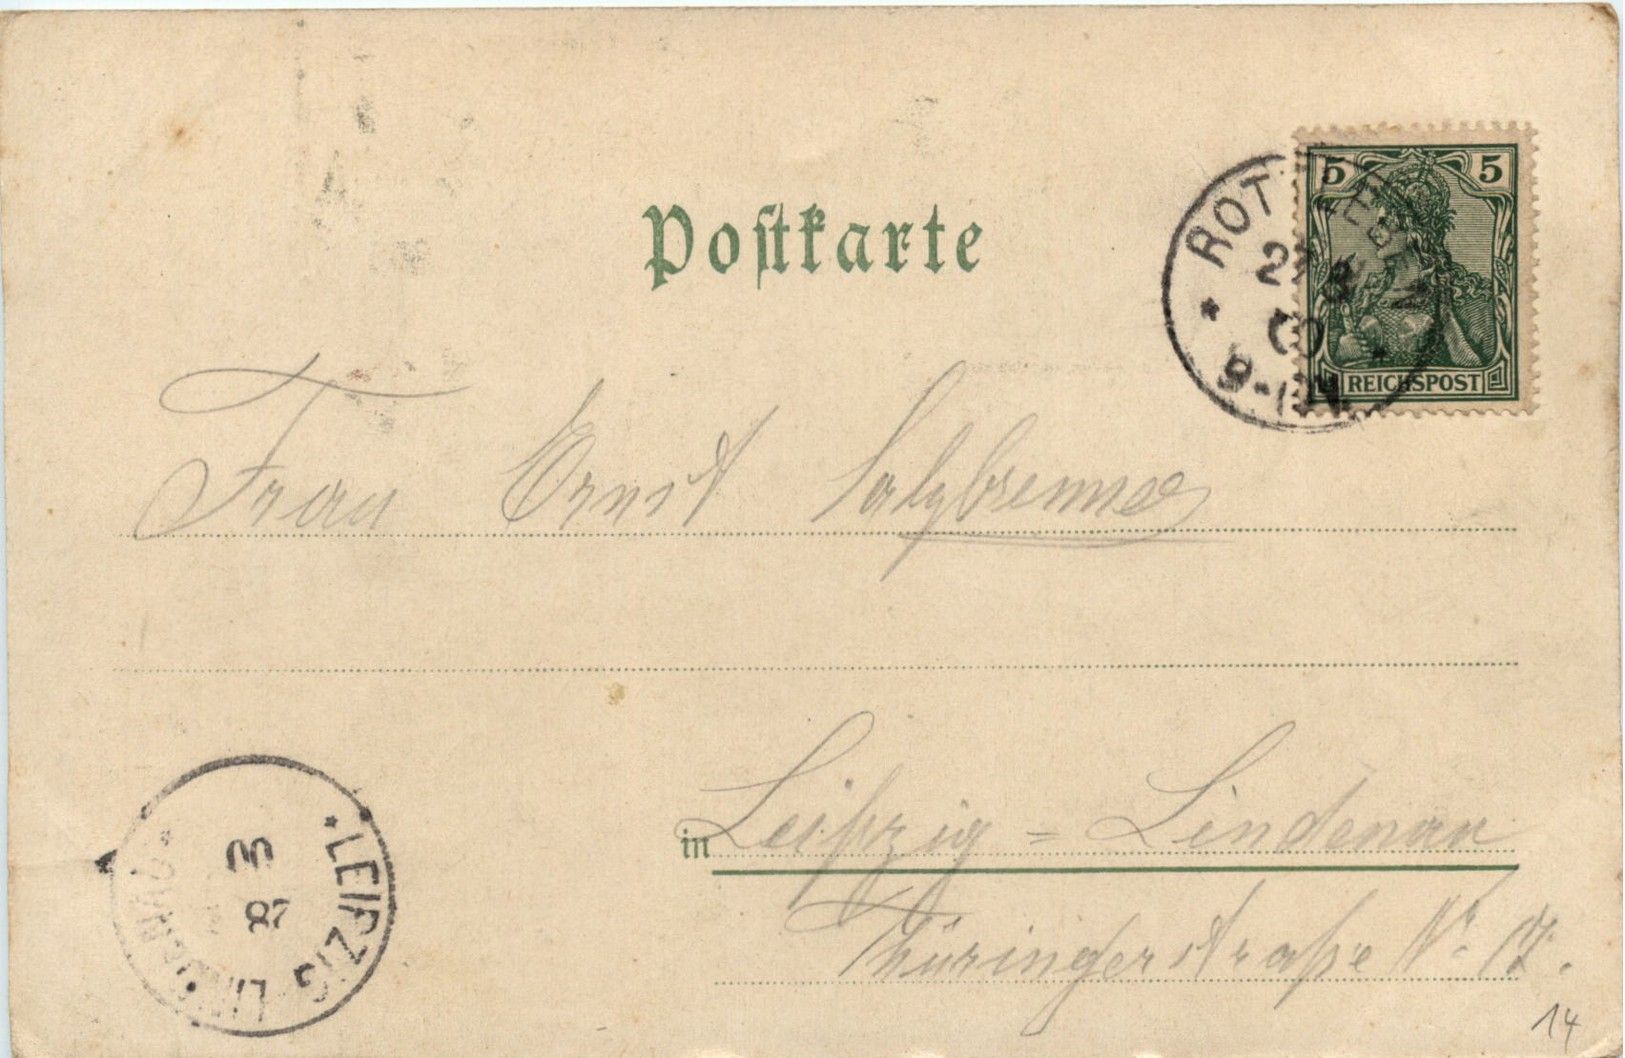 Postkarte
5 5
REICHSPOST
Frau Ernst Salzbrenner
in Leipzig = Lindenau
Thüringerstraße No.
* LEIPZIG LINDENAU *
00
28
14